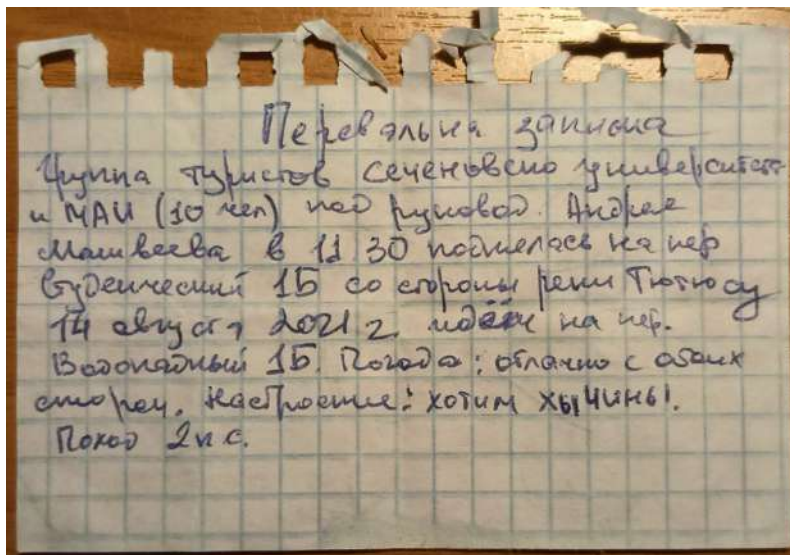 Перевальна записка
Группа туристов Сеченовско университета
и МАИ (10 чел) под руковод. Андрея
Матвеева в 11 30 поднялась на пер
Студенческий 1Б со стороны реки Тютюсу
14 августа 2021 г. идём на пер.
Водопадный 1Б. Погода: облачно с обеих
сторон. Настроение: хотим хычины.
Поход 2 к.с.